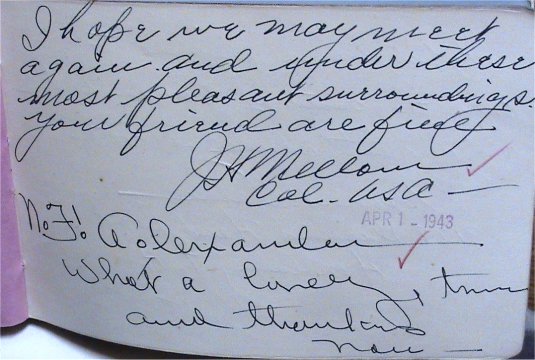 I hope we may meet
again and under these
most pleasant surroundings.
Your friend are fine
J H Mellom
Col. USA
APR 1 - 1943
No. F!
What a lovely time
and thanks
now